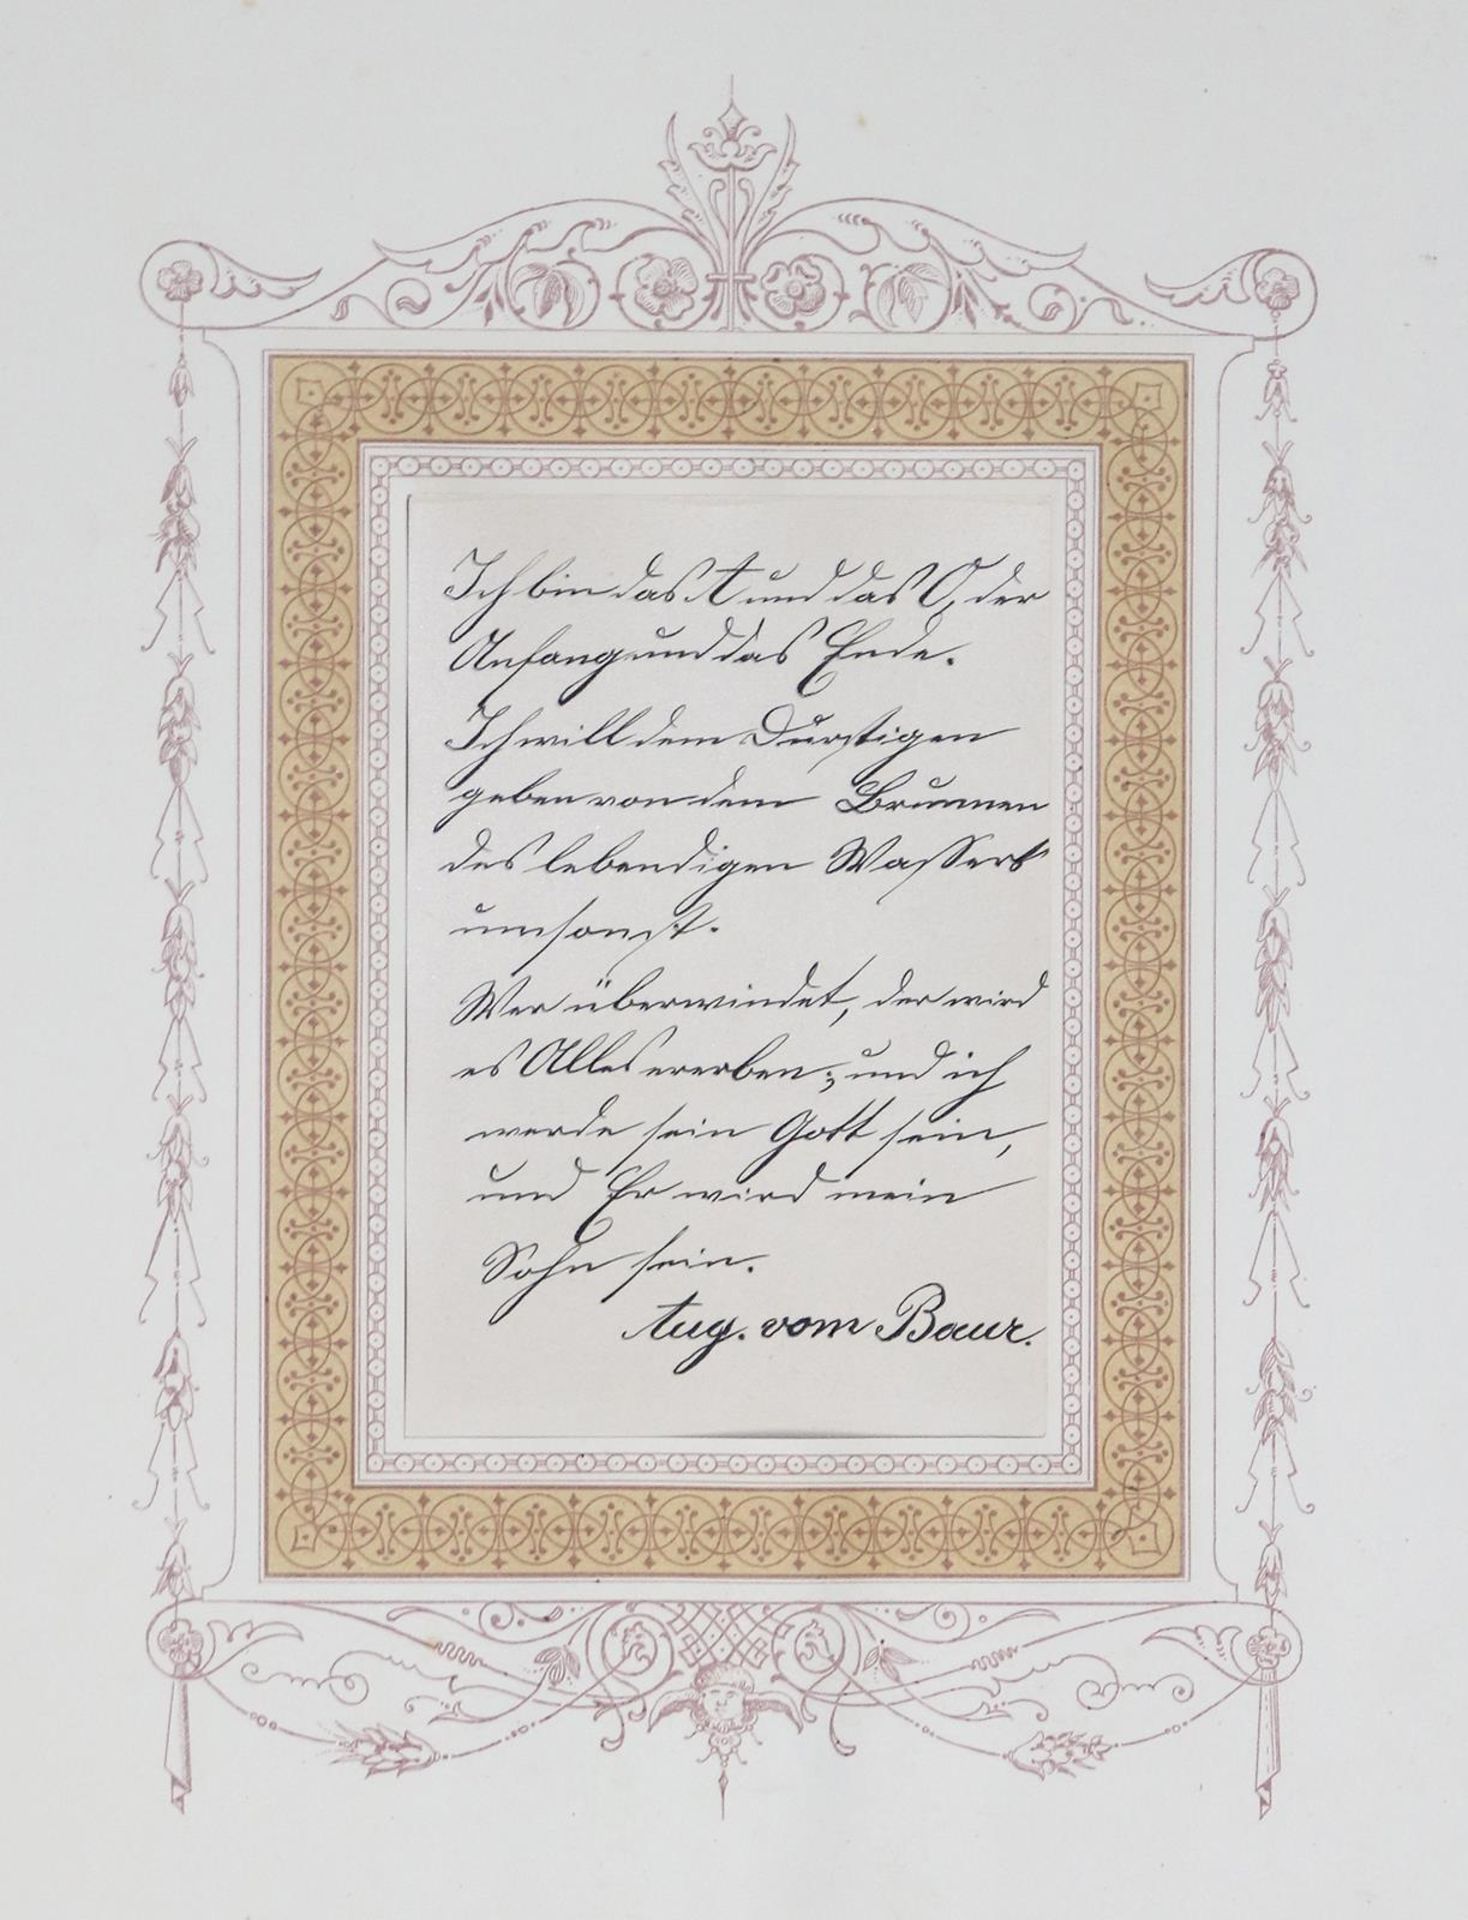 Ich bin das A und das O, der
Anfang und das Ende.
Ich will dem Durstigen
geben von dem Brunnen
des lebendigen Wassers
umsonst.
Wer überwindet, der wird
es Alles ererben; und ich
werde sein Gott sein,
und Er wird mein
Sohn sein.
Aug. vom Baur.